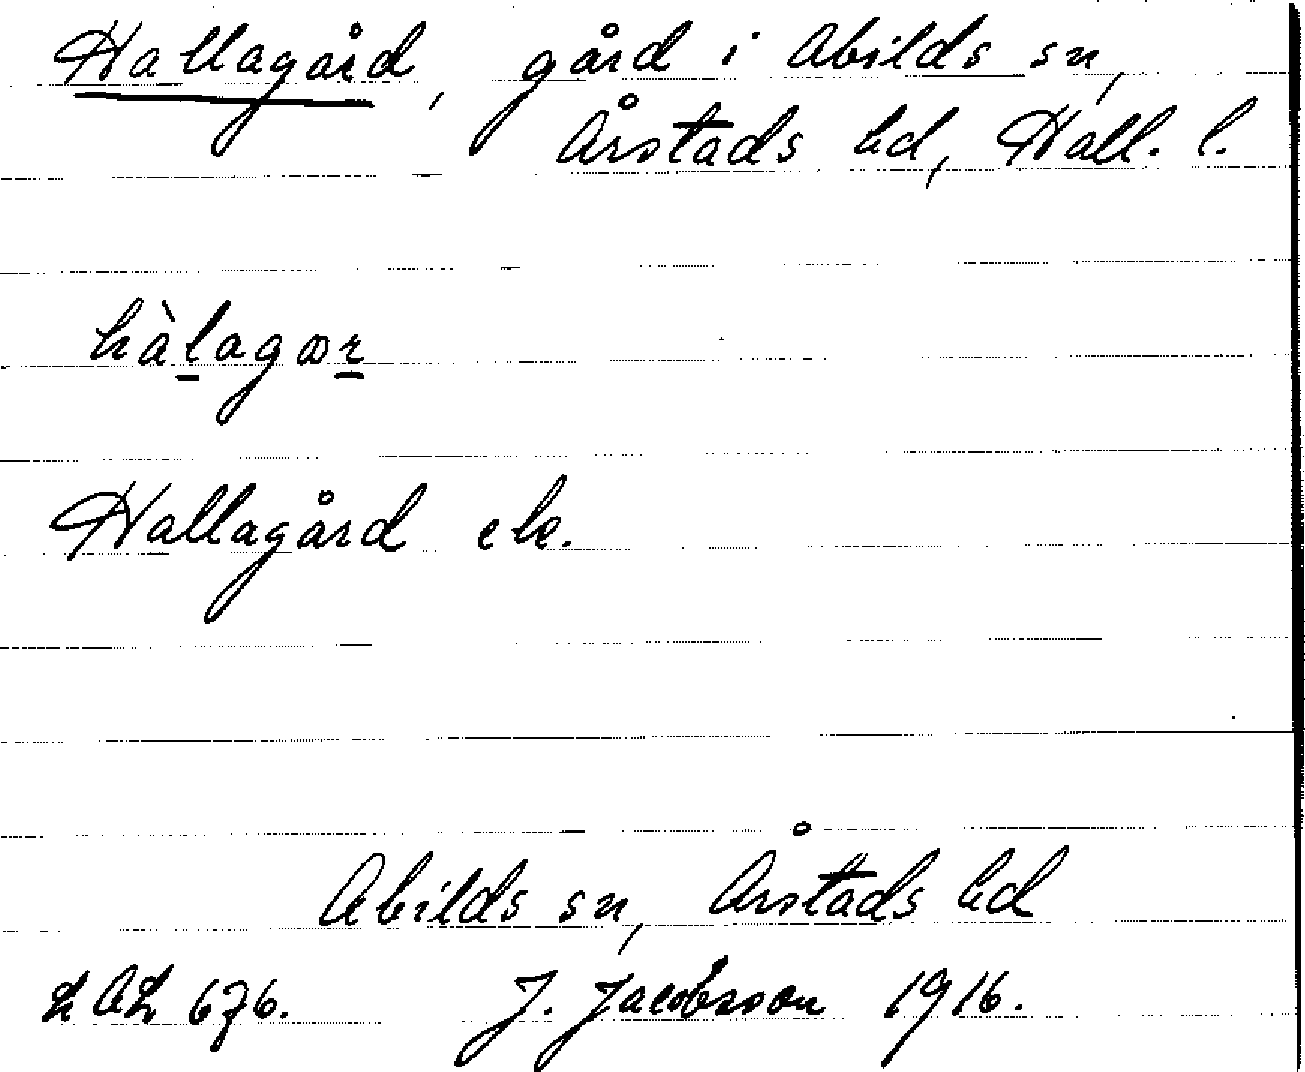 Hallagård, gård i Abilds sn,
Årstads hd, Hall. l.
hàlagær
Hallagård
Abilds sn, Årstads hd
LAL 676. J. Jacobsson 1916.